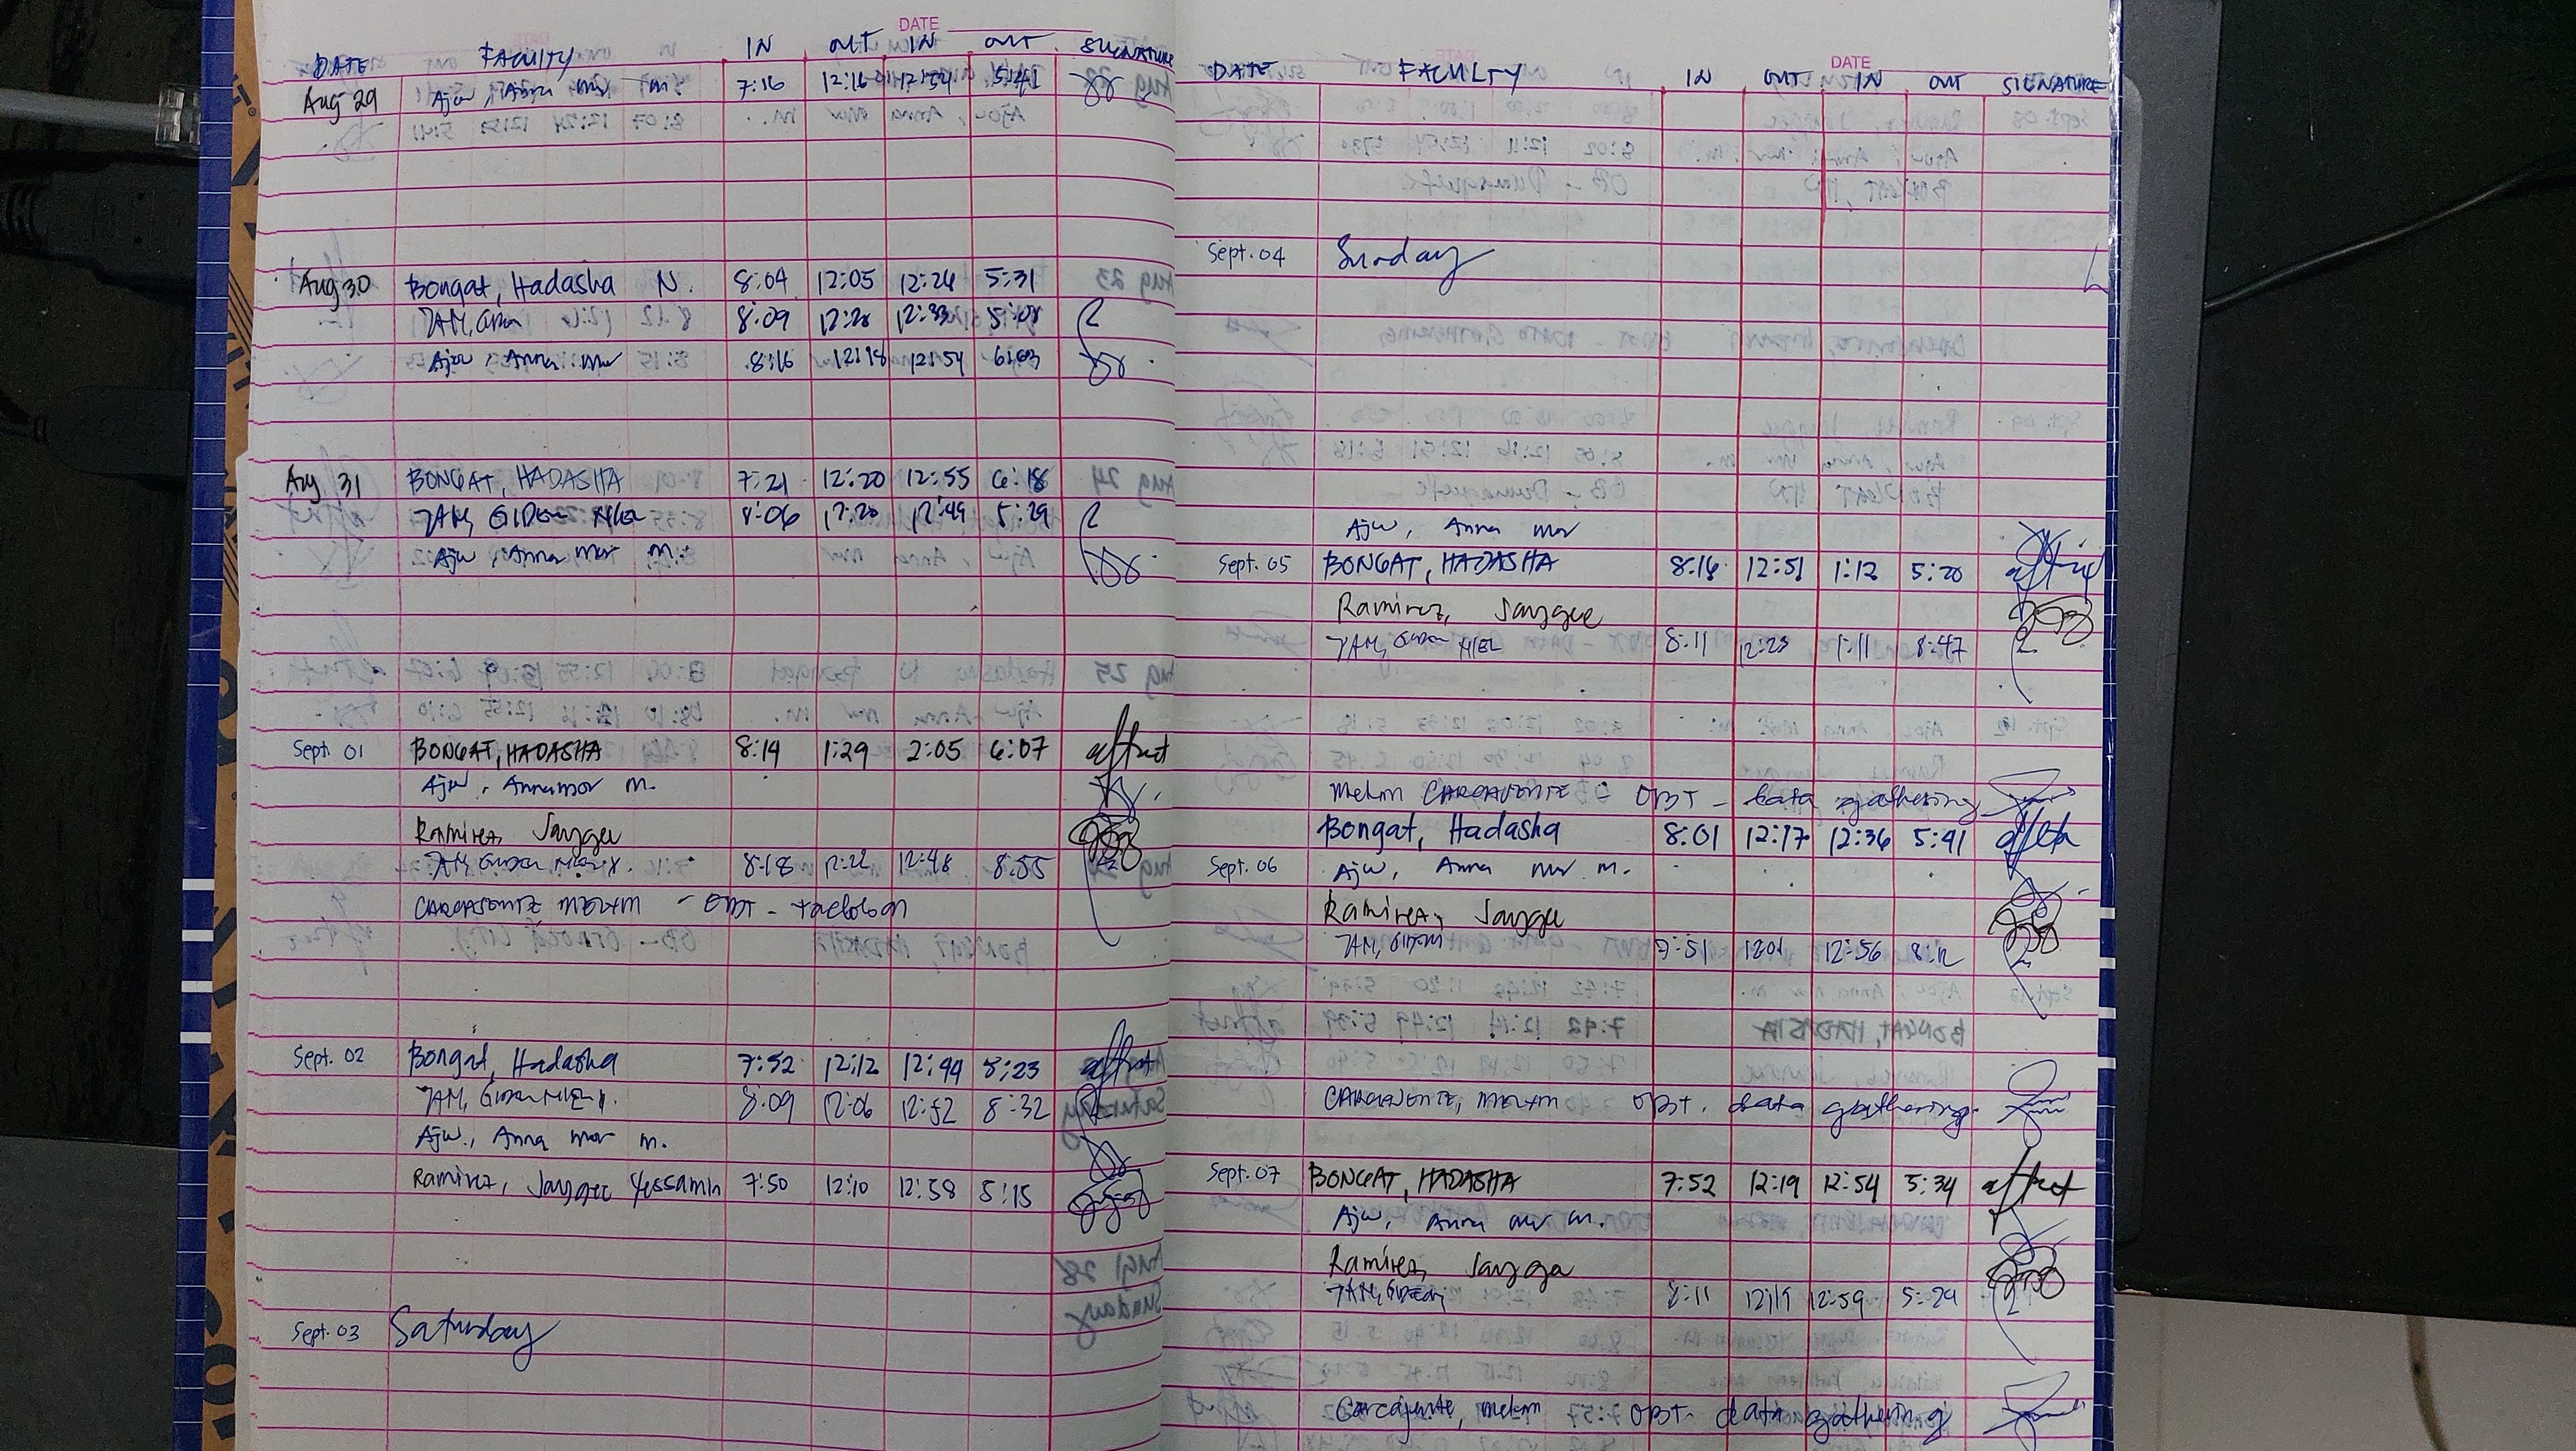 DATE
DATE FACULTY IN OUT IN OUT SIGNATURE
Aug 29 Ajw, Anna mar m. 7:16 12:16 12:54 5:41
Aug 30 Bongat, Hadasha N. 8:04 12:05 12:26 5:31
8:09 12:20 12:33 5:08
Ajw, Anna mar 8:16 12:18 12:54 6:03
Aug 31 BONGAT, HADASHA 7:21 12:20 12:55 6:18
8:06 12:20 12:49 5:29
Ajw, Anna mar m.
Sept. 01 BONGAT, HADASHA 8:19 1:29 2:05 6:07
Ajw, Annamar m.
Ramirez, Jaygee
8:18 12:22 12:48 8:55
OBT - tacloban
Sept. 02 Bongat, Hadasha 7:52 12:12 12:44 8:23
8:09 12:06 12:52 8:32
Ajw., Anna mar m.
Ramirez, Jaygee Yessamin 7:50 12:10 12:58 5:15
Sept. 03 Saturday
DATE
DATE FACULTY IN OUT IN OUT SIGNATURE
Sept. 04 Sunday
Ajw, Anna mar
Sept. 05 BONGAT, HADASHA 8:16 12:51 1:12 5:20
Ramirez, Jaygee
8:11 12:23 1:11 8:47
OBT - data gathering
Bongat, Hadasha 8:01 12:17 12:36 5:41
Sept. 06 Ajw, Anna mar m.
Ramirez, Jaygee
7:51 1201 12:56 8:12
OBT. data gathering.
Sept. 07 BONGAT, HADASHA 7:52 12:19 12:54 5:34
Ajw, Anna mar m.
Ramirez, Jaygee
8:11 12:19 12:59 5:29
OBT- data gathering